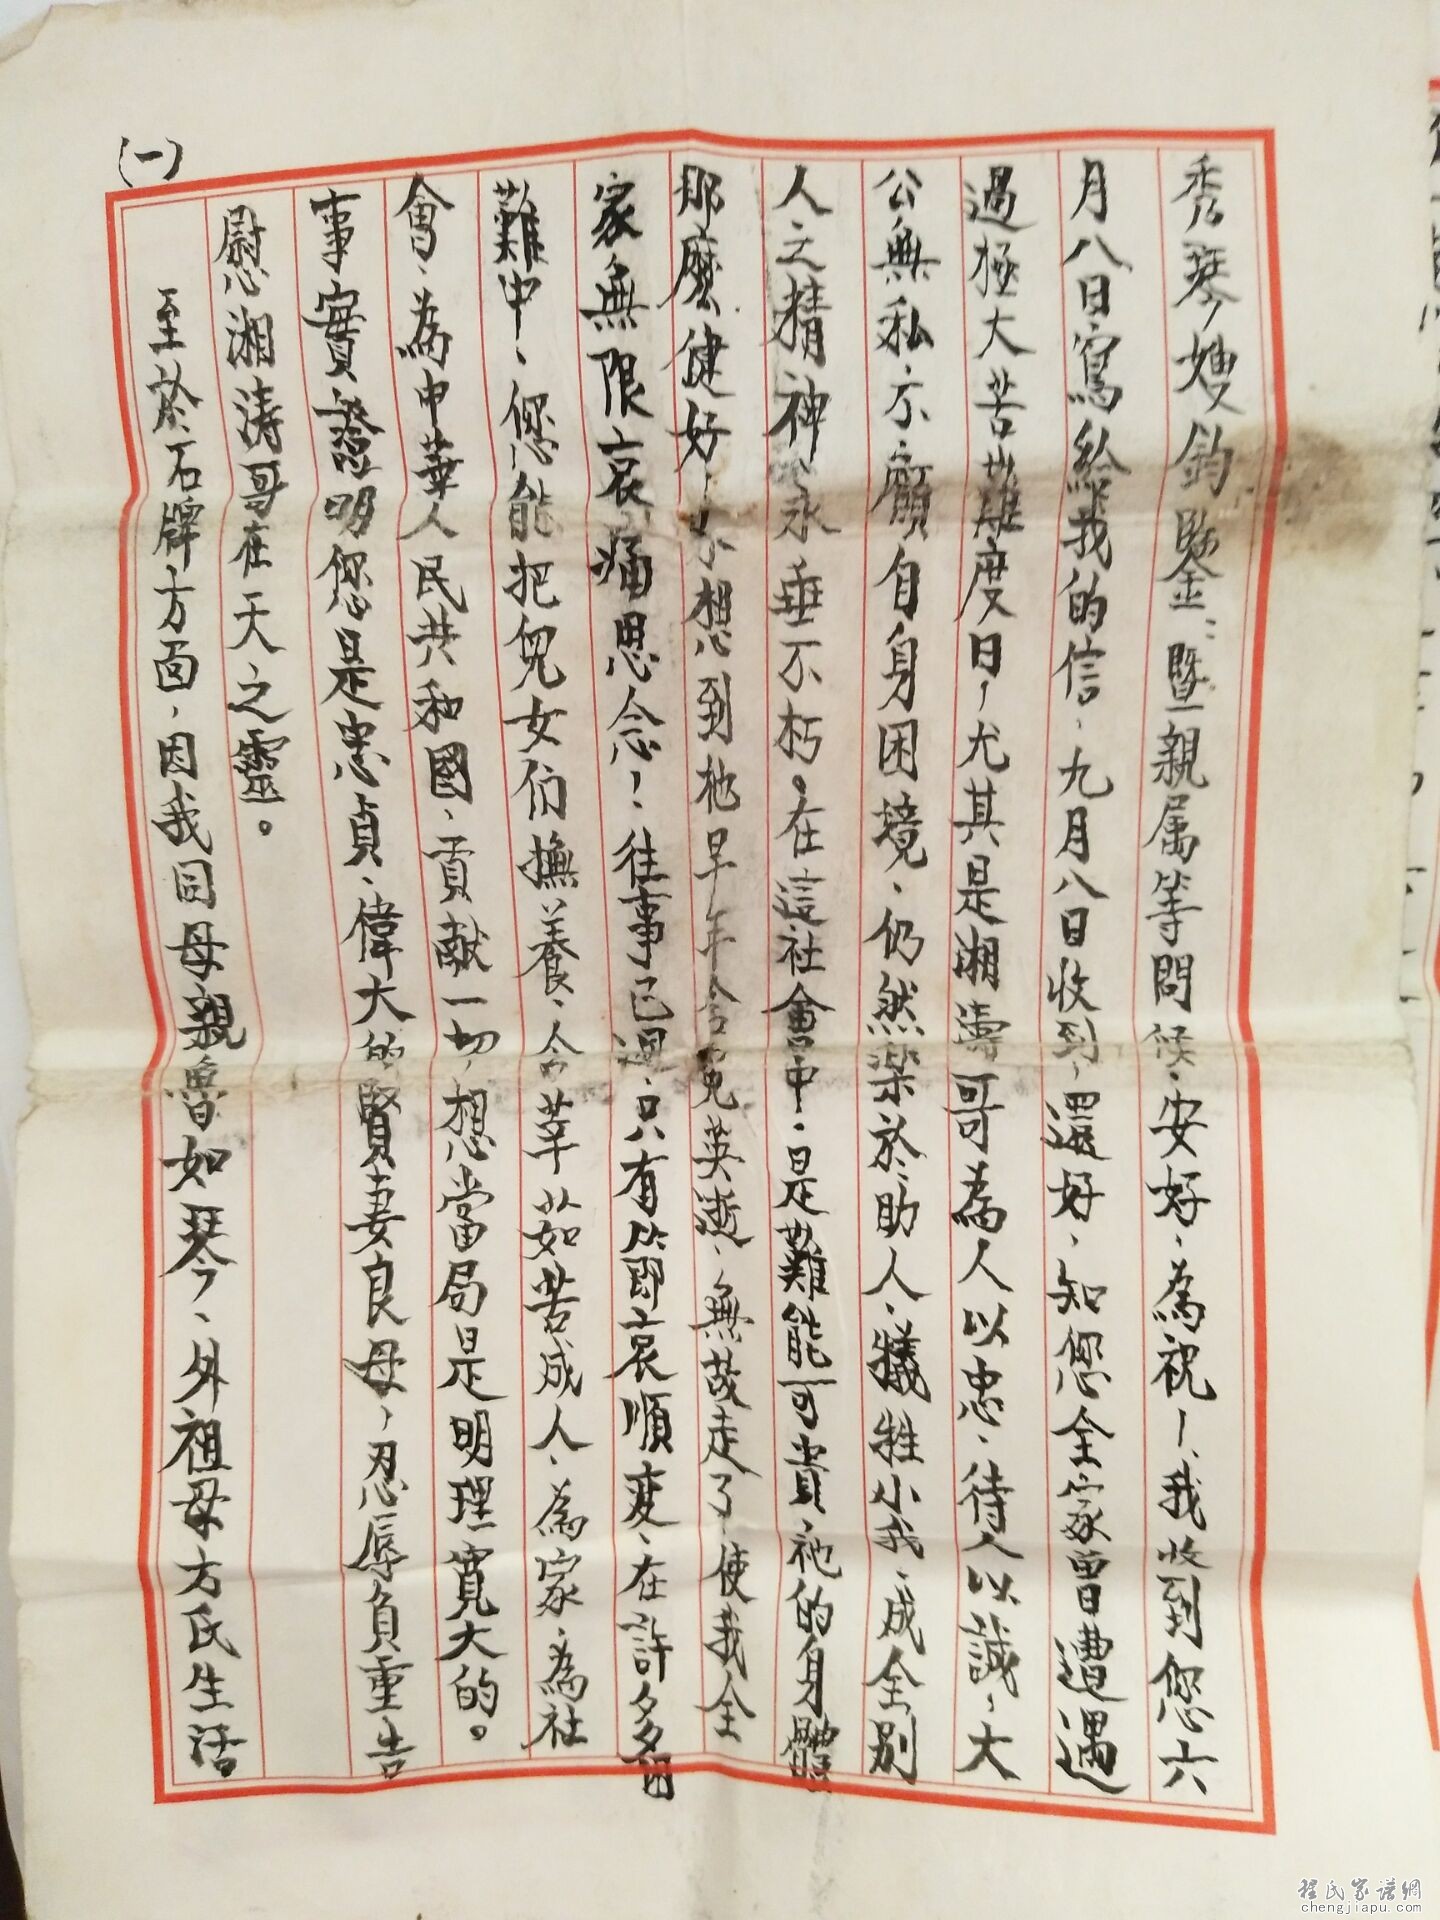 秀琴嫂鈞鑒：暨親属等問候、安好、為祝！我收到您六
月八日寫給我的信，九月八日收到，還好、知您全家曾遭遇
過極大苦難度日，尤其是湘濤哥為人以忠、待人以誠，大
公無私、不顧自身困境、仍然樂於助人、犧牲小我、成全别
人之精神永垂不朽。在這社會中、是難能可貴、祂的身體
那麼健好，不想到祂早年含冤英逝、無故走了、使我全
家無限哀痛思念！往事已過、只有節哀順变、在許多困
難中、您能把兒女们撫養、含莘茹苦成人、為家、為社
會、為中華人民共和國、貢献一切，想當局是明理寬大的。
事實證明您是忠貞、偉大的賢妻良母，忍辱負重告
慰湘涛哥在天之靈。
至於石牌方面，因我回母親魯如琴、外祖母方氏生活。
(一)
程氏家谱網
chengjiapu.com